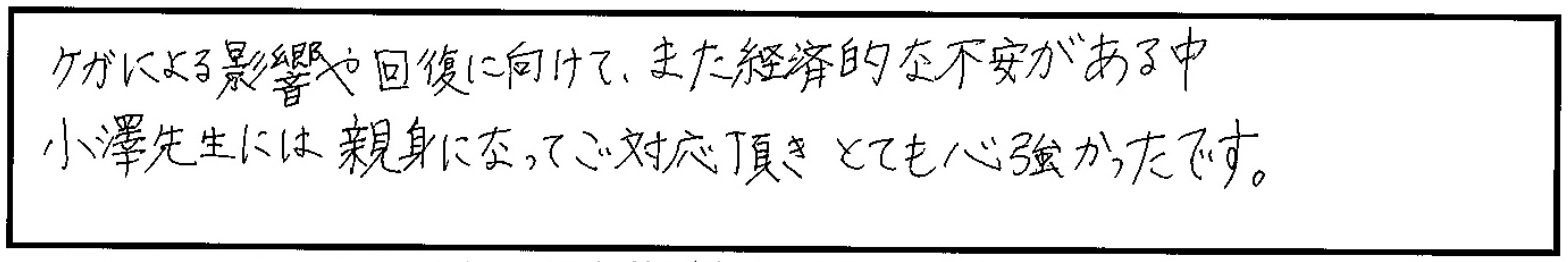 ケガによる影響や回復に向けて、また経済的な不安がある中
小澤先生には親身になってご対応頂きとても心強かったです。